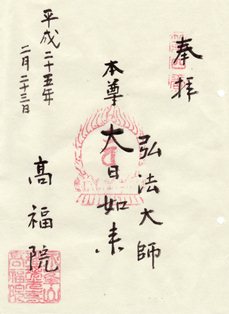 奉拝
弘法大師
本尊大日如来
高福院
平成二十五年
二月二十三日